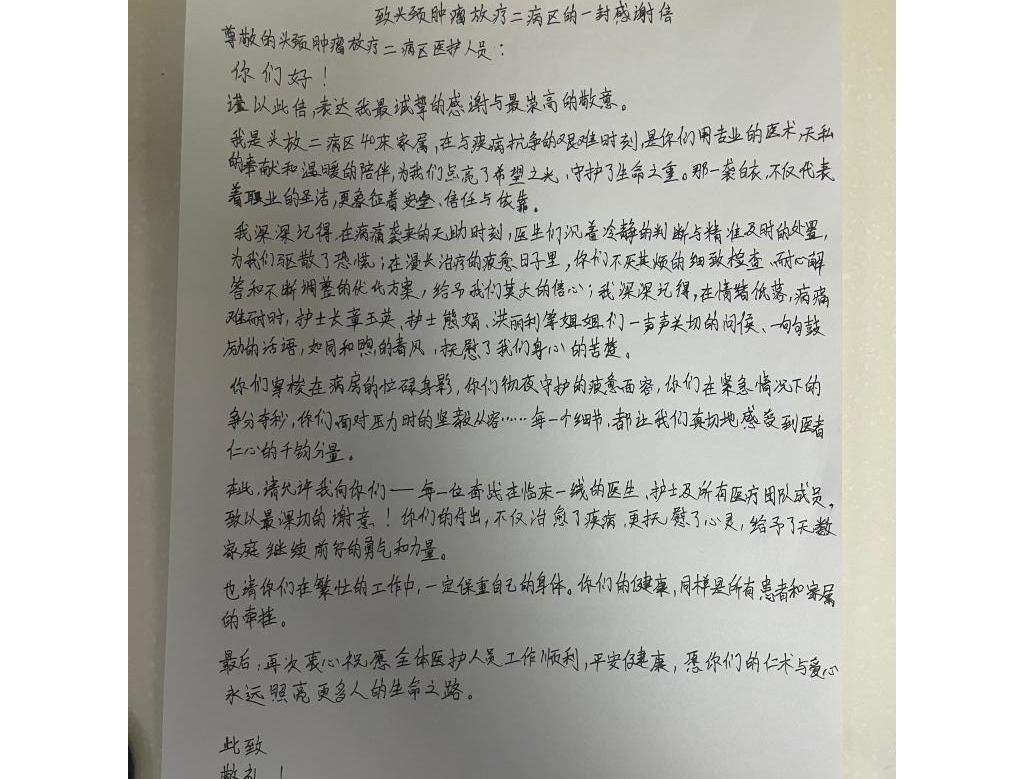 致头颈肿瘤放疗二病区的一封感谢信
尊敬的头颈肿瘤放疗二病区医护人员：
你们好！
谨以此信,表达我最诚挚的感谢与最崇高的敬意。
我是头放二病区40床家属,在与疾病抗争的艰难时刻,是你们用专业的医术,无私
的奉献和温暖的陪伴,为我们点亮了希望之光,守护了生命之重。那一袭白衣,不仅代表
着职业的圣洁,更象征着安全、信任与依靠。
我深深记得,在病痛袭来的无助时刻,医生们沉着冷静的判断与精准及时的处置,
为我们驱散了恐慌；在漫长治疗的疲惫日子里,你们不厌其烦的细致检查、耐心解
答和不断调整的优化方案,给予我们莫大的信心；我深深记得,在情绪低落,病痛
难耐时,护士长章玉英、护士熊娟、洪丽利等姐姐们一声声关切的问候、一句句鼓
励的话语,如同和煦的春风,抚慰了我们身心的苦楚。
你们穿梭在病房的忙碌身影,你们彻夜守护的疲惫面容,你们在紧急情况下的
争分夺秒,你们面对压力时的坚毅从容……每一个细节,都让我们真切地感受到医者
仁心的千钧分量。
在此,请允许我向你们——每一位奋战在临床一线的医生、护士及所有医疗团队成员,
致以最深切的谢意！你们的付出,不仅治愈了疾病,更抚慰了心灵,给予了无数
家庭继续前行的勇气和力量。
也请你们在繁忙的工作中,一定保重自己的身体。你们的健康,同样是所有患者和家属
的牵挂。
最后,再次衷心祝愿全体医护人员工作顺利,平安健康,愿你们的仁术与爱心
永远照亮更多人的生命之路。
此致
敬礼！